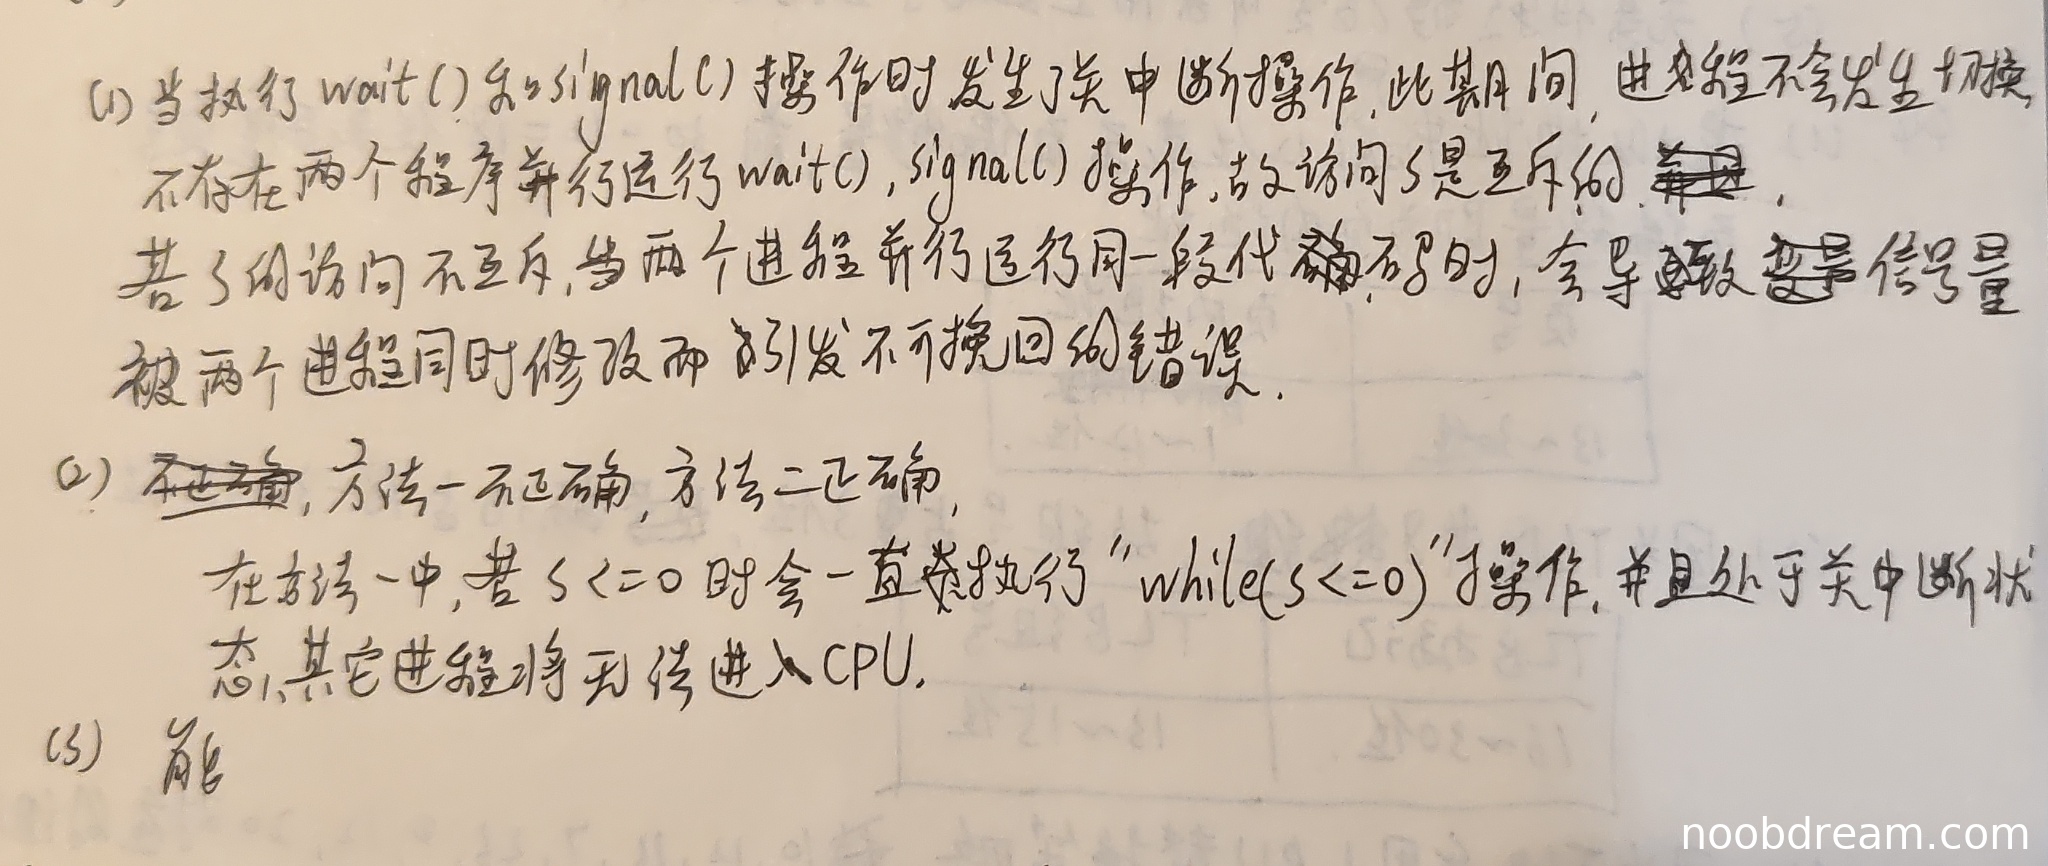 (1) 当执行 wait() 和 signal() 操作时发生了关中断操作,此期间,进程不会发生切换,
不存在两个程序并行运行 wait(), signal() 操作,故访问S是互斥的.
若S的访问不互斥,当两个进程并行运行同一段代码时,会导致信号量
被两个进程同时修改而引发不可挽回的错误.
(2) 不正确,方法一不正确,方法二正确,
在方法一中,若 S<=0 时会一直执行 "while(S<=0)" 操作,并且处于关中断状
态,其它进程将无法进入CPU.
(3) 能
noobdream.com